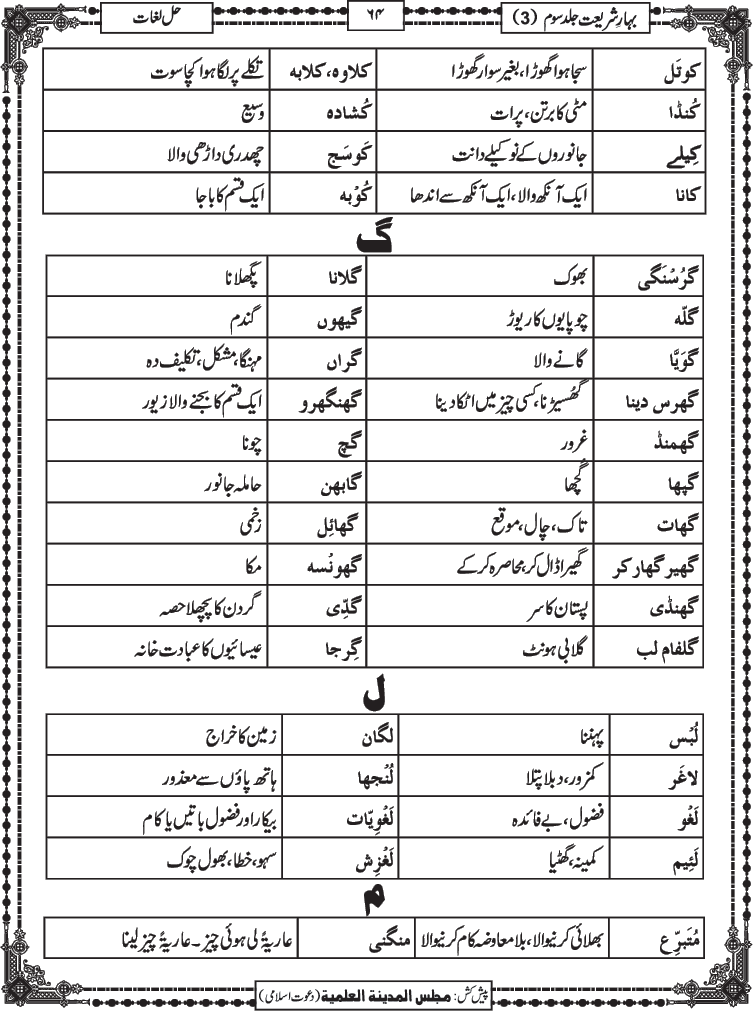 بہارِ شریعت جلد سوم (3) ۶۴ حل لغات
کوتَل سجا ہوا گھوڑا، بغیر سوار گھوڑا کلاوہ، کلابہ تکلے پر لگا ہوا کچا سوت
کُنڈا مٹی کا برتن، پرات کُشادہ وسیع
کِیلے جانوروں کے نوکیلے دانت کَوسَج چھدری داڑھی والا
کانا ایک آنکھ والا، ایک آنکھ سے اندھا کُوْبہ ایک قسم کا باجا
گ
گرُسْنَگی بھوک گلانا پگھلانا
گلّہ چوپایوں کا ریوڑ گیہوں گندم
گوَیَّا گانے والا گراں مہنگا، مشکل، تکلیف دہ
گھرس دینا گھُسیڑنا، کسی چیز میں اٹکا دینا گھنگھرو ایک قسم کا بجنے والا زیور
گھمنڈ غرور گچ چونا
گپھا گُچھا گابھن حاملہ جانور
گھات تاک، چال، موقع گھائِل زخمی
گھیر گھار کر گھیرا ڈال کر، محاصرہ کر کے گھونُسہ مکا
گھنڈی پستان کا سر گدِّی گردن کا پچھلا حصہ
گلفام لب گلابی ہونٹ گِرجا عیسائیوں کا عبادت خانہ
ل
لُبْس پہننا لگان زمین کا خراج
لاغَر کمزور، دبلا پتلا لُنْجھا ہاتھ پاؤں سے معذور
لَغْو فضول، بے فائدہ لَغْوِیّات بیکار اور فضول باتیں یا کام
لَئِیم کمینہ، گھٹیا لَغْزِش سہو، خطا، بھول چوک
م
مُتَبَرِّع بھلائی کرنیوالا، بلا معاوضہ کام کرنیوالا منگنی عاریۃً لی ہوئی چیز۔ عاریۃً چیز لینا
پیش کش: مجلس المدینة العلمیة (دعوت اسلامی)